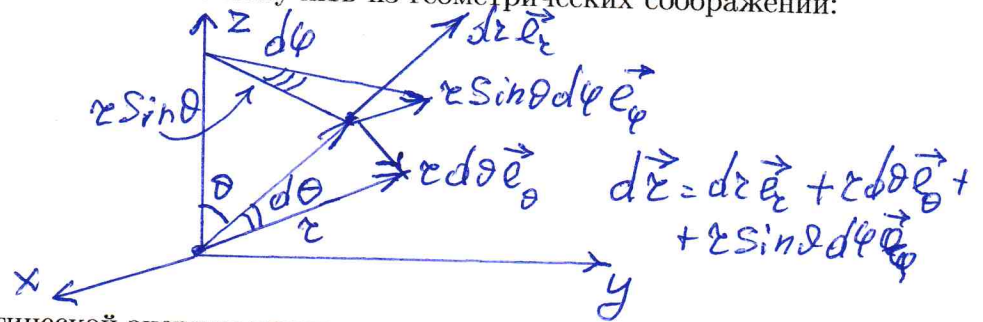 из геометрических соображений:
z
dφ
dr e⃗_r
r sinθ
r sinθ dφ e⃗_φ
θ
dθ
r
r dθ e⃗_θ
dr⃗ = dr e⃗_r + r dθ e⃗_θ +
+ r sinθ dφ e⃗_φ
x
y